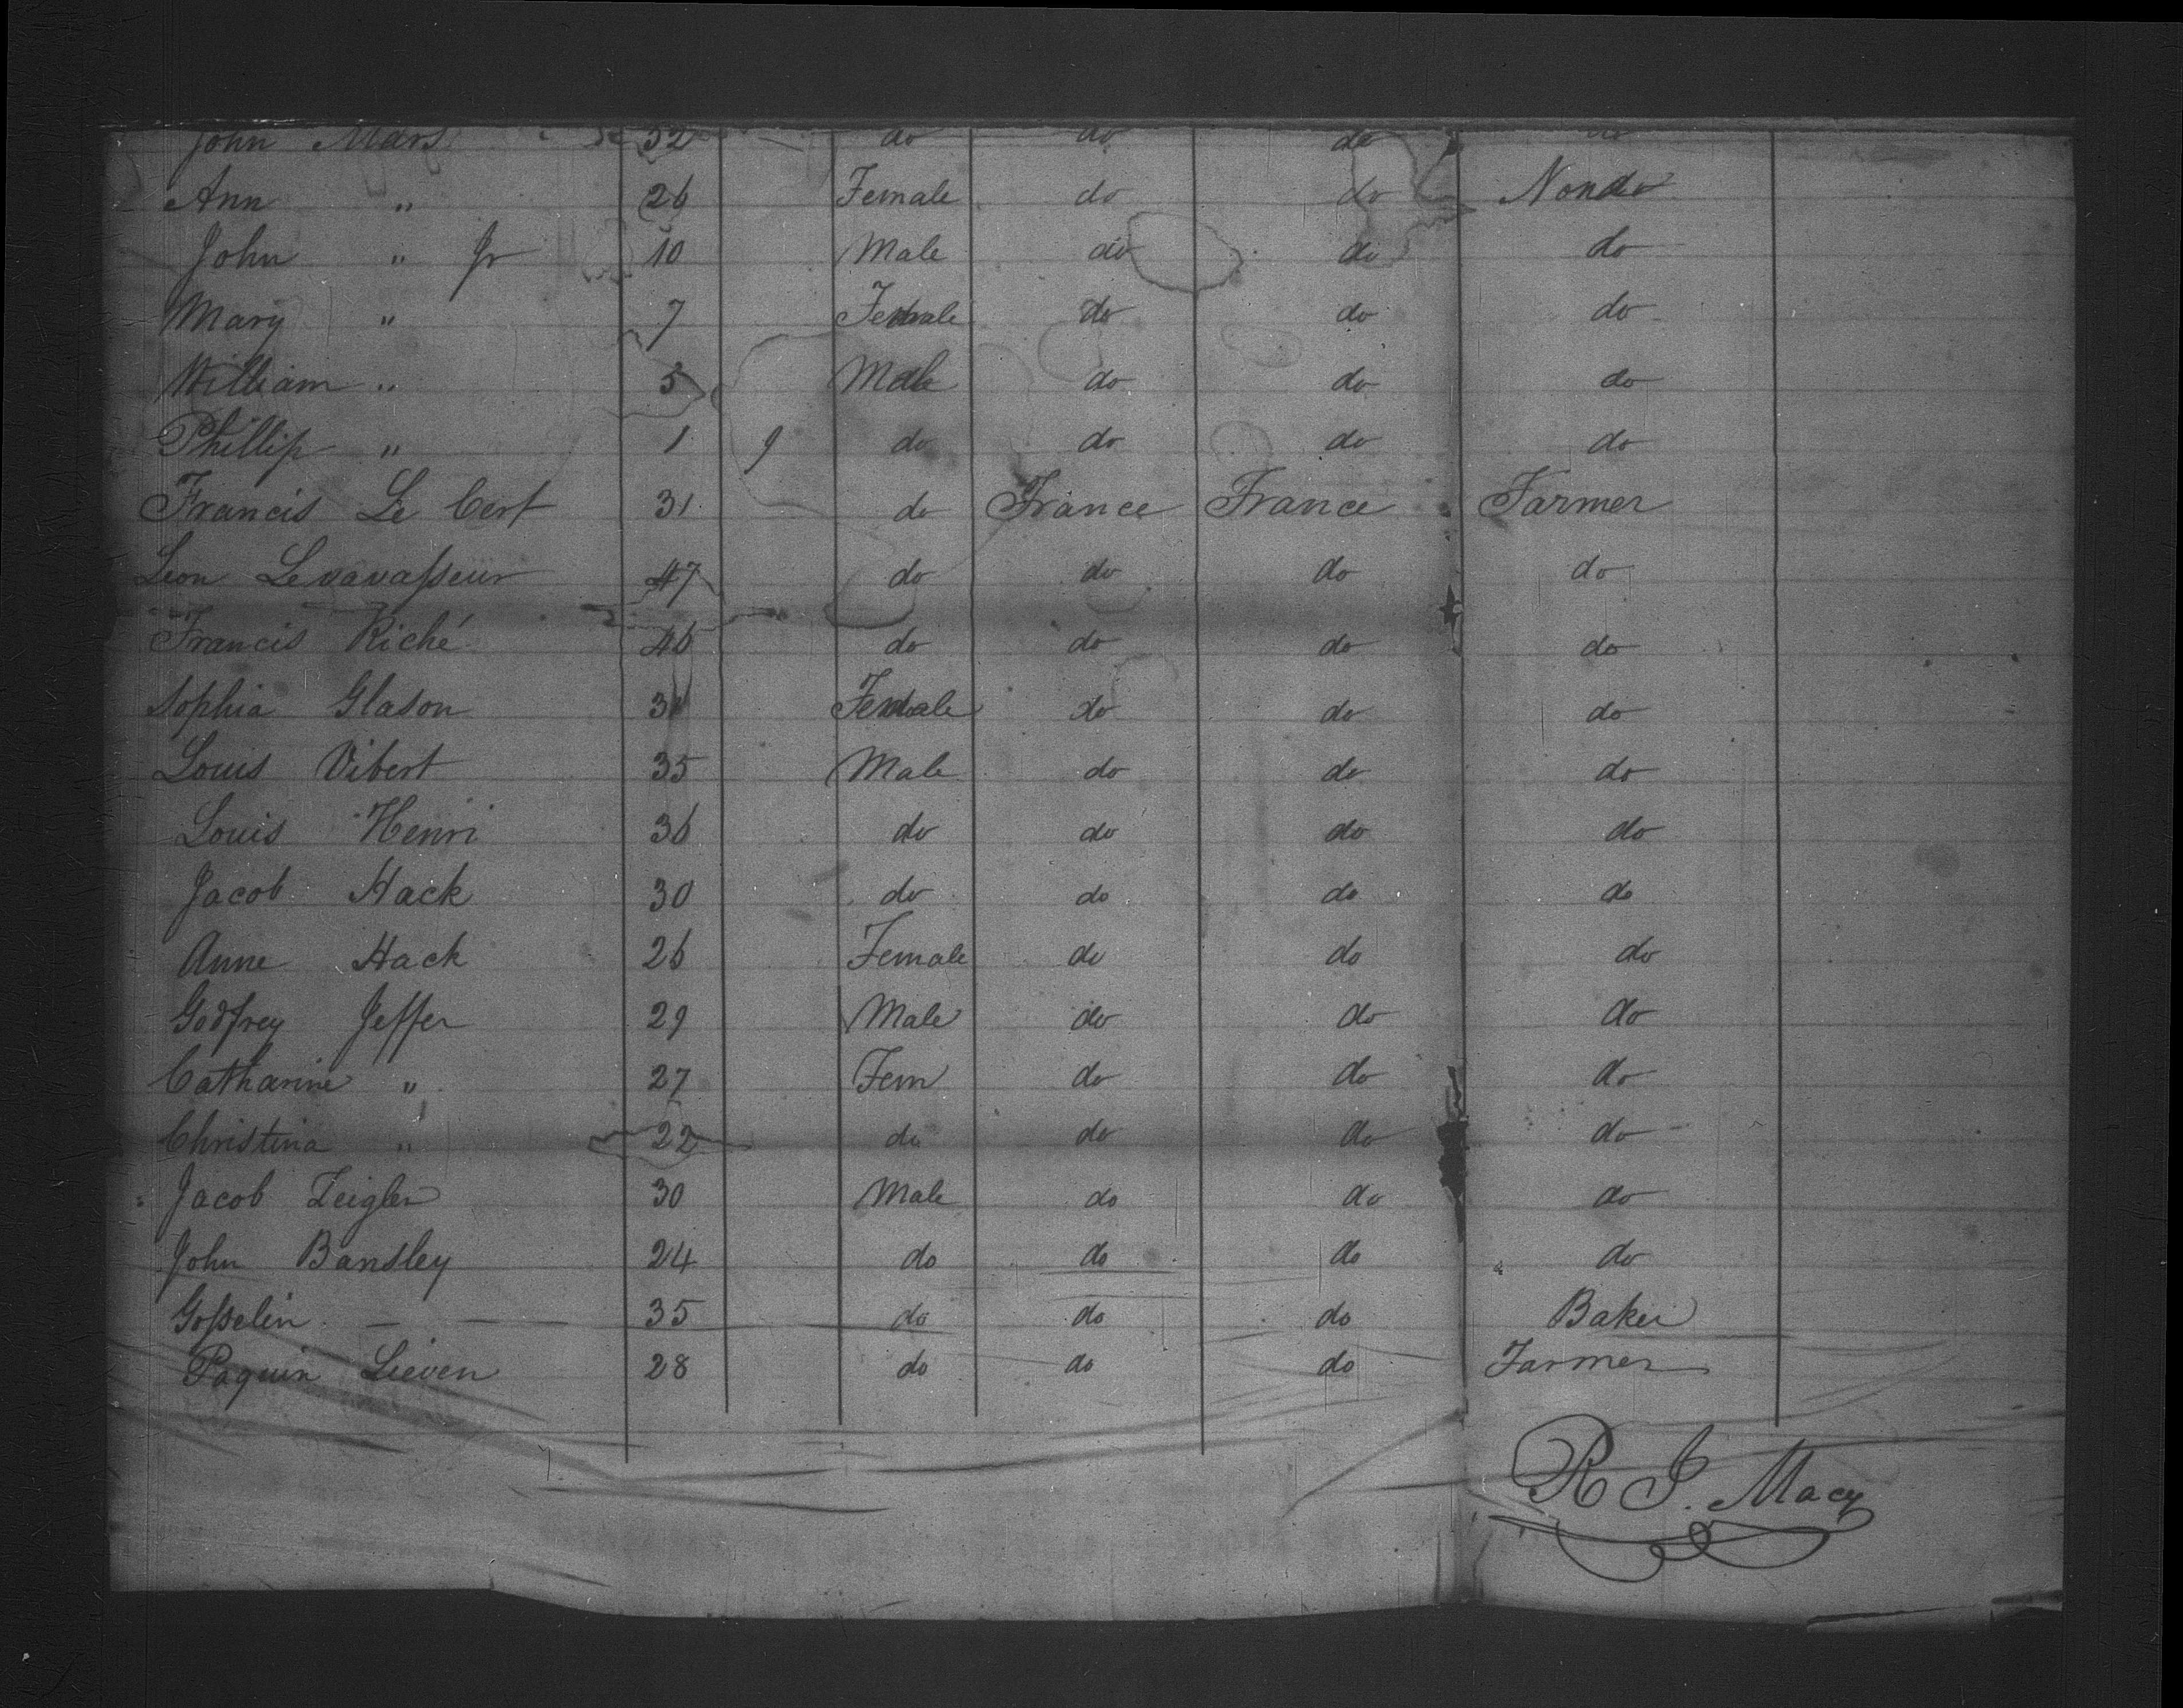 John Mars 32 do do do do
Ann " 26 Female do do Nondo
John " Jr 10 Male do do do
Mary " 7 Female do do do
William " 5 Male do do do
Phillip " 1 9 do do do do
Francis Le Cert 31 do France France Farmer
Leon Levavasseur 47 do do do do
Francis Riché 46 do do do do
Sophia Glason 31 Female do do do
Louis Vibert 35 Male do do do
Louis Henri 36 do do do do
Jacob Hack 30 do do do do
Anne Hack 26 Female do do do
Godfrey Jeffer 29 Male do do do
Catharine " 27 Fem do do do
Christina " 22 do do do do
Jacob Zeigler 30 Male do do do
John Bansley 24 do do do do
Gosselin — — 35 do do do Baker
Paquin Lieven 28 do do do Farmer
R J. Macy